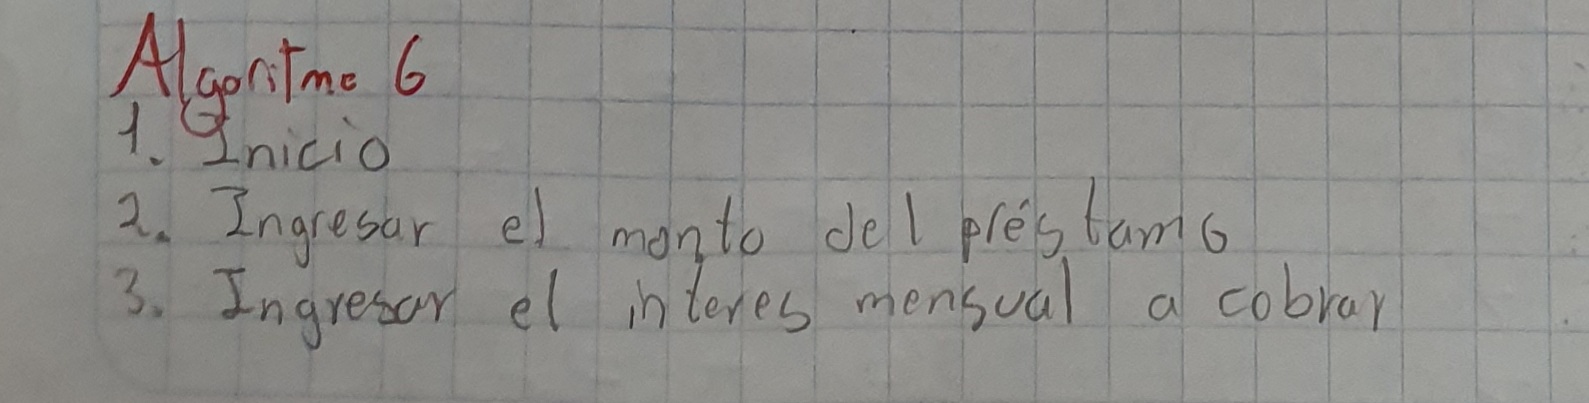 Algoritmo 6
1. Inicio
2. Ingresar el monto del préstamo
3. Ingresar el interes mensual a cobrar